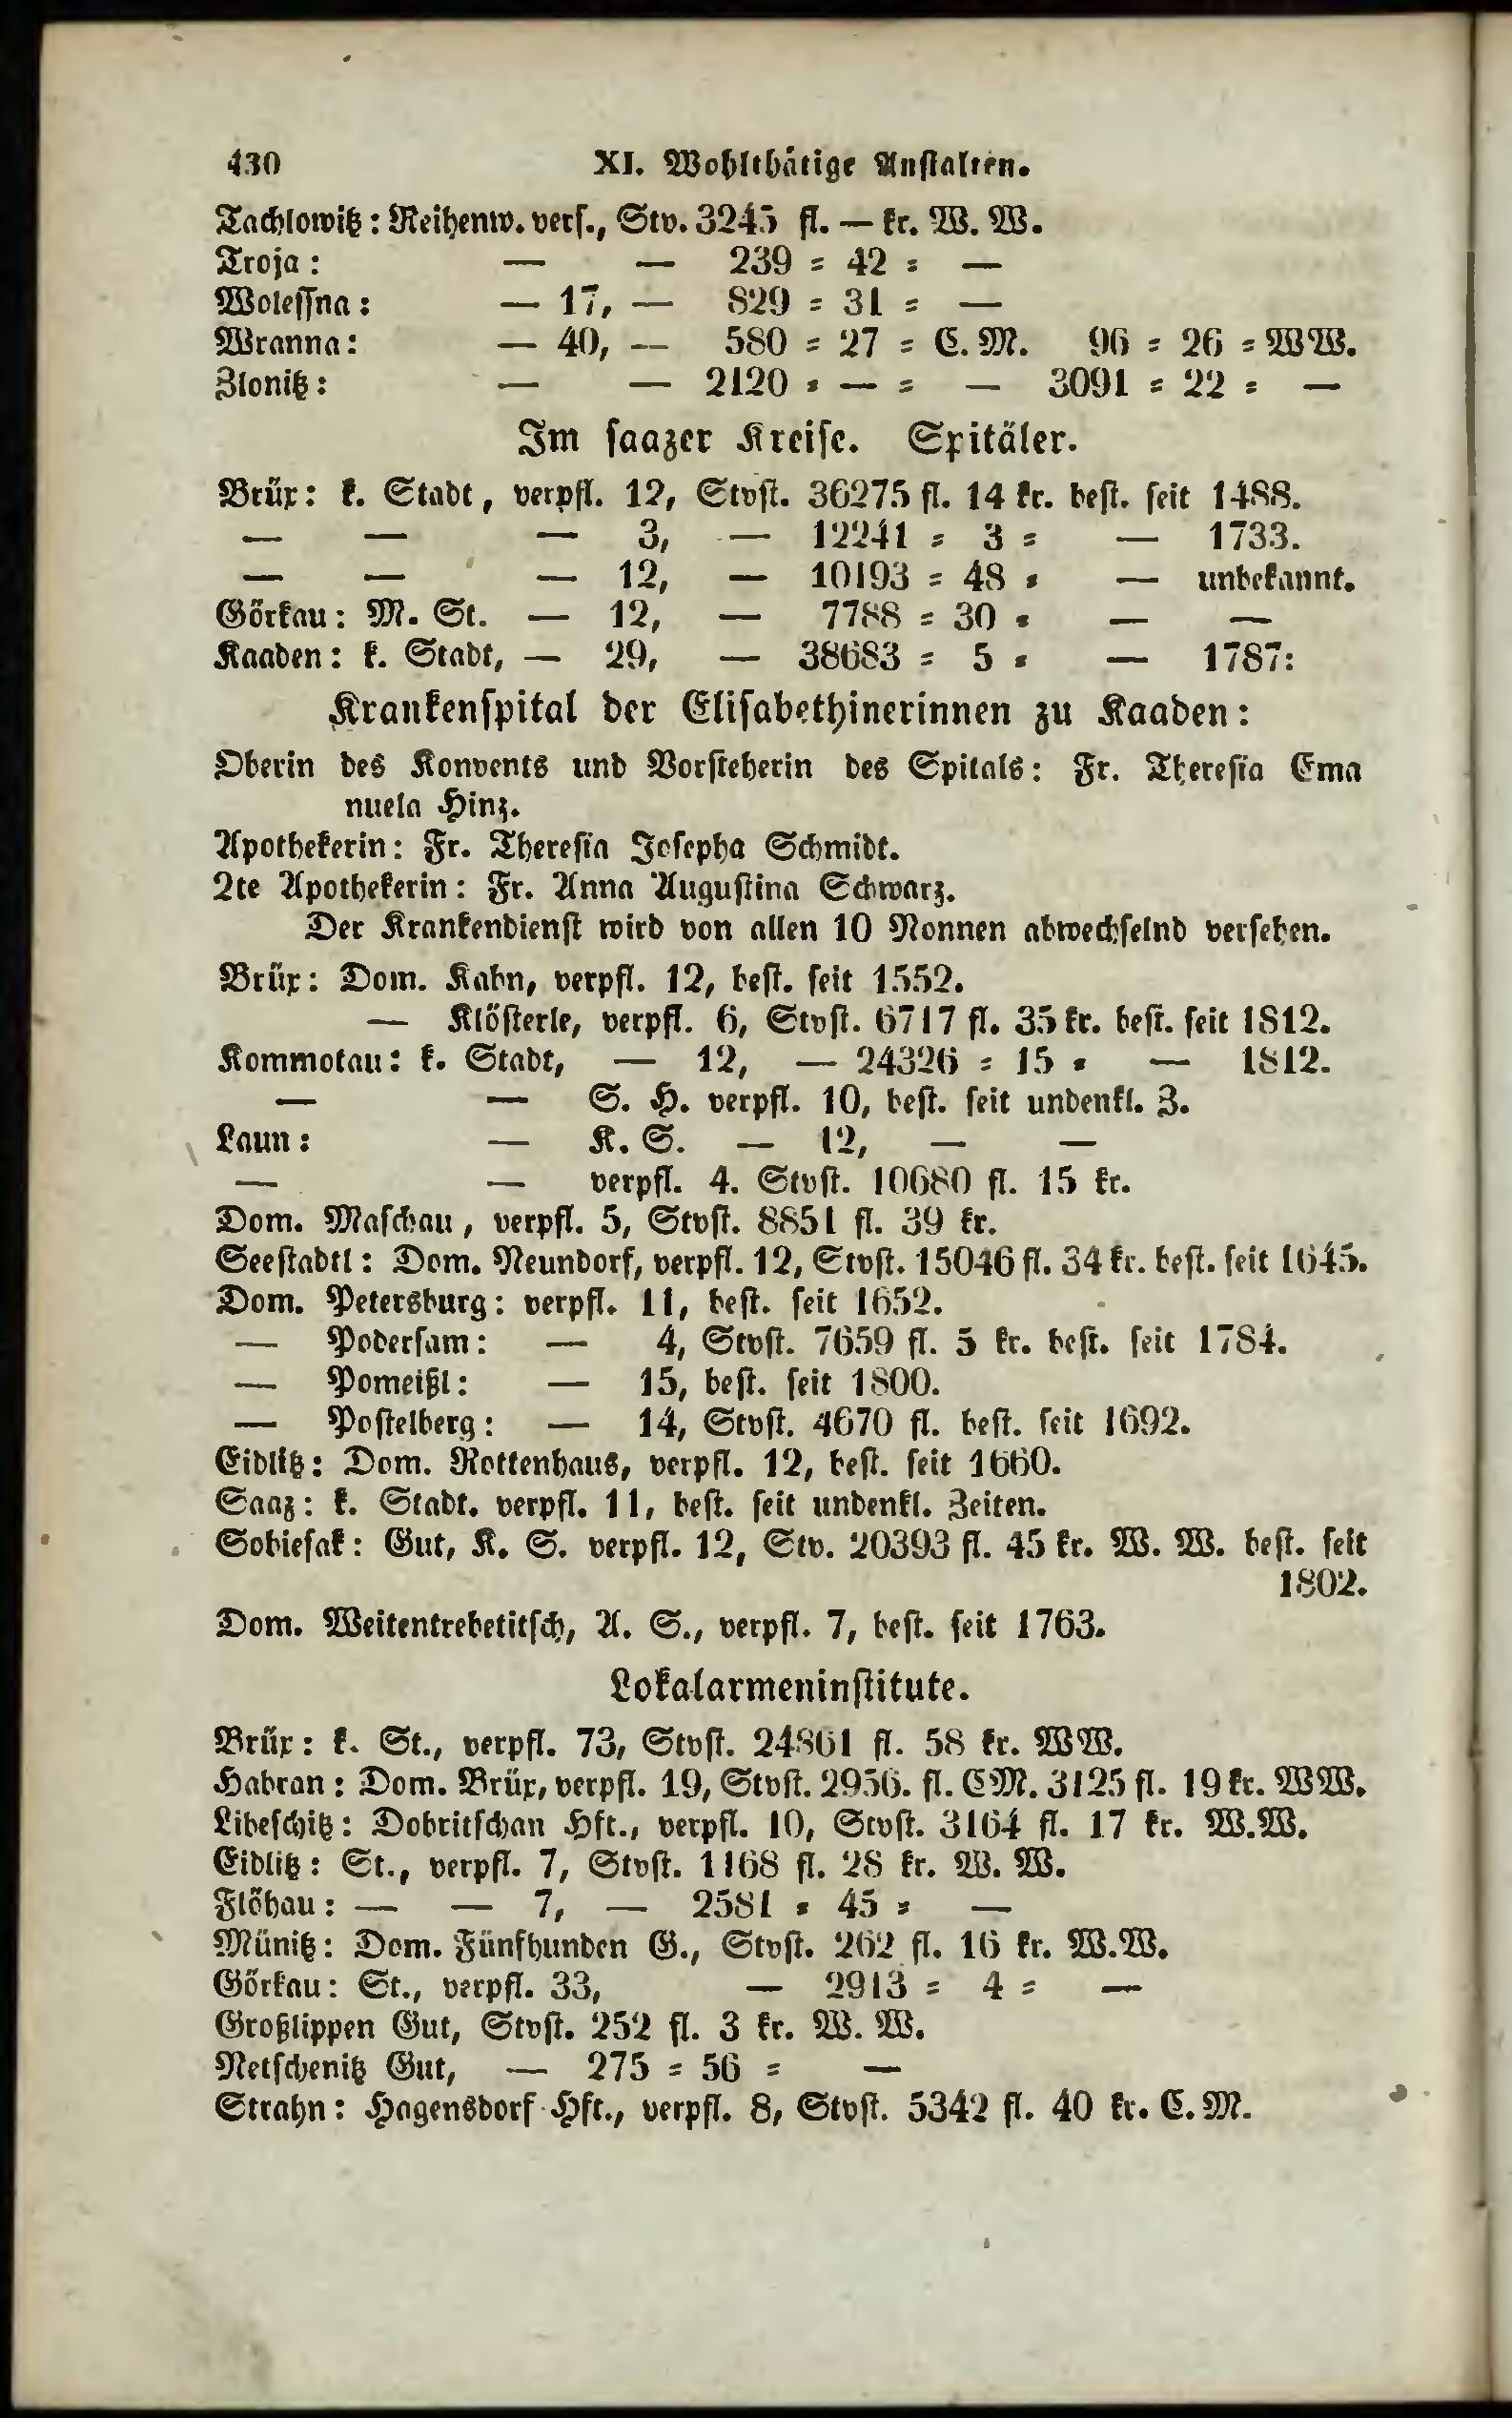 430 XI. Wohlthätige Anstalten.
Tachlowitz: Reihenw. vers., Stv. 3245 fl. — kr. W. W.
Troja: — — 239 = 42 = —
Wolessna: — 17, — 829 = 31 = —
Wranna: — 40, — 580 = 27 = C. M. 96 = 26 = WW.
Zlonitz: — — 2120 = — = — 3091 = 22 = —
Im saazer Kreise. Spitäler.
Brüx: k. Stadt, verpfl. 12, Stvst. 36275 fl. 14 kr. best. seit 1488.
— — — 3, — 12241 = 3 = — 1733.
— — — 12, — 10193 = 48 = — unbekannt.
Görkau: M. St. — 12, — 7788 = 30 = — —
Kaaden: k. Stadt, — 29, — 38683 = 5 = — 1787:
Krankenspital der Elisabethinerinnen zu Kaaden:
Oberin des Konvents und Vorsteherin des Spitals: Fr. Theresia Ema
nuela Hinz.
Apothekerin: Fr. Theresia Josepha Schmidt.
2te Apothekerin: Fr. Anna Augustina Schwarz.
Der Krankendienst wird von allen 10 Nonnen abwechselnd versehen.
Brüx: Dom. Kahn, verpfl. 12, best. seit 1552.
— Klösterle, verpfl. 6, Stvst. 6717 fl. 35 kr. best. seit 1812.
Kommotau: k. Stadt, — 12, — 24326 = 15 = — 1812.
— — S. H. verpfl. 10, best. seit undenkl. Z.
Laun: — K. S. — 12, — —
— — verpfl. 4. Stvst. 10680 fl. 15 kr.
Dom. Maschau, verpfl. 5, Stvst. 8851 fl. 39 kr.
Seestadtl: Dom. Neundorf, verpfl. 12, Stvst. 15046 fl. 34 kr. best. seit 1645.
Dom. Petersburg: verpfl. 11, best. seit 1652.
— Podersam: — 4, Stvst. 7659 fl. 5 kr. best. seit 1784.
— Pomeißl: — 15, best. seit 1800.
— Postelberg: — 14, Stvst. 4670 fl. best. seit 1692.
Eidlitz: Dom. Rottenhaus, verpfl. 12, best. seit 1660.
Saaz: k. Stadt. verpfl. 11, best. seit undenkl. Zeiten.
Sobiesak: Gut, K. S. verpfl. 12, Stv. 20393 fl. 45 kr. W. W. best. seit
1802.
Dom. Weitentrebetitsch, A. S., verpfl. 7, best. seit 1763.
Lokalarmeninstitute.
Brüx: k. St., verpfl. 73, Stvst. 24861 fl. 58 kr. WW.
Habran: Dom. Brüx, verpfl. 19, Stvst. 2956. fl. CM. 3125 fl. 19 kr. WW.
Libeschitz: Dobritschan Hft., verpfl. 10, Stvst. 3164 fl. 17 kr. W.W.
Eidlitz: St., verpfl. 7, Stvst. 1168 fl. 28 kr. W. W.
Flöhau: — — 7, — 2581 = 45 = —
Münitz: Dom. Fünfhunden G., Stvst. 262 fl. 16 kr. W.W.
Görkau: St., verpfl. 33, — 2913 = 4 = —
Großlippen Gut, Stvst. 252 fl. 3 kr. W. W.
Netschenitz Gut, — 275 = 56 = —
Strahn: Hagensdorf Hft., verpfl. 8, Stvst. 5342 fl. 40 kr. C. M.